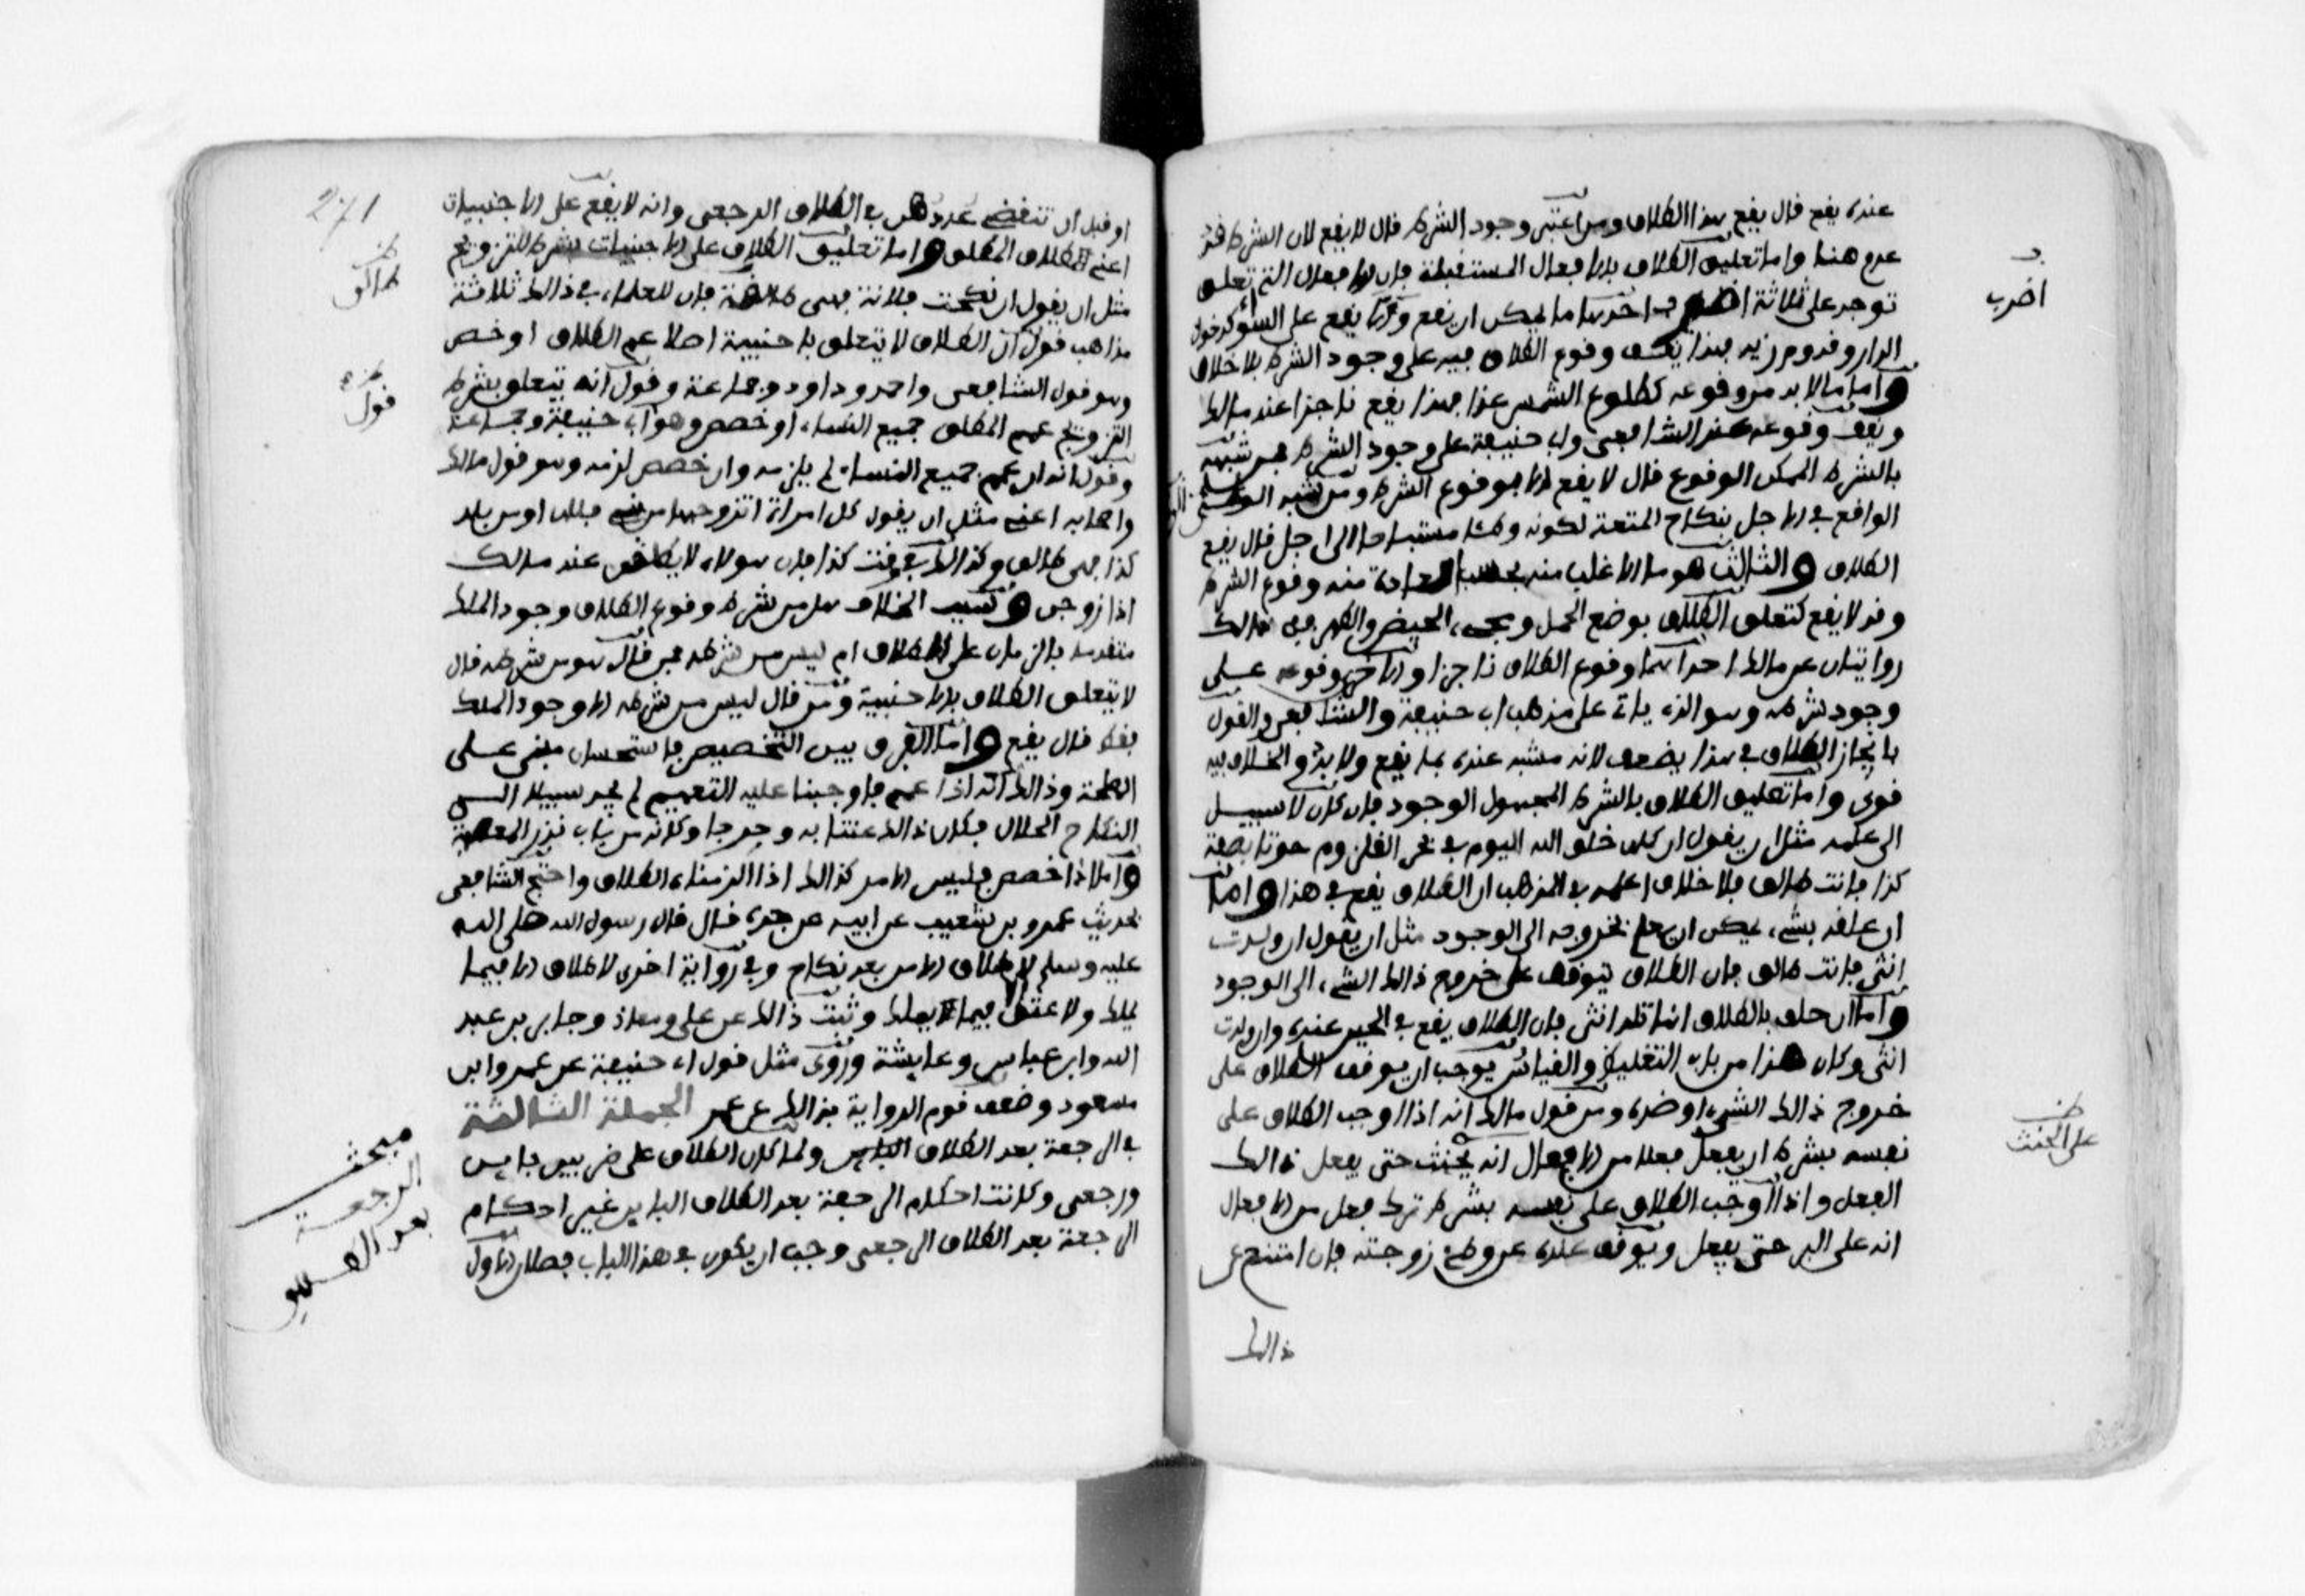 عنده يقع قال يقع هذا الطلاق ومن اعتبر وجود الشرط قال لا يقع لان الشرط قد
عدم هنا واما تعليق الطلاق بالافعال المستقبلة فان الافعال التي تعلق
توجد على ثلاثة اضرب احدها ما يمكن ان يقع والا يقع على السواء كدخول
الدار وقدوم زيد فهذا يقف وقوع الطلاق فيه على وجود الشرط بلا خلاف
واما ما لا بد من وقوعه كطلوع الشمس غدا فهذا يقع ناجزا عند مالك
ويقف وقوعه عند الشافعي وابي حنيفة على وجود الشرط فمن شبهه
بالشرط الممكن الوقوع قال لا يقع الا بوقوع الشرط ومن شبهه بالوطئ
الواقع في الاجل بنكاح المتعة لكونه وطئا مستباحا الى اجل قال يقع
الطلاق والثالث هو ما الاغلب منه بحسب العادة منه وقوع الشرط
وقد لا يقع كتعلق الطلاق بوضع الحمل ومجيء الحيض والطهر ففي ذالك
روايتان عن مالك احداهما وقوع الطلاق ناجزا والاخرى وقوعه على
وجود شرطه وهو الذي ياتي على مذهب ابي حنيفة والشافعي والقول
بانجاز الطلاق في هذا يضعف لانه مشبه عنده بما يقع ولا بد والخلاف فيه
قوي واما تعليق الطلاق بالشرط المجهول الوجود فان كان لا سبيل
الى علمه مثل ان يقول ان كان خلق الله اليوم في بحر القلزوم حوتا بصفة
كذا فانت طالق فلا خلاف اعلمه في المذهب ان الطلاق يقع في هذا واما
ان علقه بشيء يمكن ان يعلم بخروجه الى الوجود مثل ان يقول ان ولدت
انثى فانت طالق فان الطلاق يتوقف على خروج ذالك الشيء الى الوجود
واما ان حلف بالطلاق انها تلد انثى فان الطلاق يقع في الحين عنده وان ولدت
انثى وكان هذا من باب التغليظ والقياس يوجب ان يوقف الطلاق على
خروج ذالك الشيء او ضده ومن قول مالك انه اذا اوجب الطلاق على
نفسه بشرط ان يفعل فعلا من الافعال انه يحنث حتى يفعل ذالك
الفعل واذا اوجب الطلاق على نفسه بشرط ترك فعل من الافعال
انه على البر حتى يفعل ويوقف عنده عن وطئ زوجته فان امتنع عن
ذالك
اضرب
على الحنث
271
او قبل ان تنقضي عددهن في الطلاق الرجعي وانه لا يقع على الاجنبيات
اعني الطلاق المطلق واما تعليق الطلاق على الاجنبيات بشرط التزويج
مثل ان يقول ان نكحت فلانة فهي طالق فان للعلماء في ذالك ثلاثة
مذاهب قول ان الطلاق لا يتعلق باجنبية اصلا عم الطلاق او خص
وهو قول الشافعي واحمد وداود وجماعة وقول انه يتعلق بشرط
التزويج عمم المطلق جميع النساء او خصص وهو ابي حنيفة وجماعة
وقول انه ان عمم جميع النساء لم يلزمه وان خصص لزمه وهو قول مالك
واصحابه اعني مثل ان يقول كل امراة اتزوجها من بني فلان او من بلد
كذا فهي طالق وكذالك في وقت كذا فان هولاء لا يطلقن عند مالك
اذا زوجن وسبب الخلاف هل من شرط وقوع الطلاق وجود الملك
متقدما بالزمان على الطلاق ام ليس من شرطه فمن قال هو من شرطه قال
لا يتعلق الطلاق بالاجنبية ومن قال ليس من شرطه الا وجود الملك
فقط قال يقع واما الفرق بين التخصيص فاستحسان مبني على
المصلحة وذالك انه اذا عمم فاوجبنا عليه التعميم لم يجد سبيلا الى
النكاح الحلال فكان ذالك عنتا به وحرجا وكانه من باب نذر المعصية
واما اذا خصص فليس الامر كذالك اذا الزمناه الطلاق واحتج الشافعي
بحديث عمرو بن شعيب عن ابيه عن جده قال قال رسول الله صلى الله
عليه وسلم لا طلاق الا من بعد نكاح وفي رواية اخرى لا طلاق الا فيما
يملك ولا عتق فيما لا يملك وثبت ذالك عن علي ومعاذ وجابر بن عبد
الله وابن عباس وعايشة وروى مثل قول ابي حنيفة عن عمر وابن
مسعود وضعف قوم الرواية بذالك عن عمر الجملة الثالثة
في الرجعة بعد الطلاق ولما كان الطلاق على ضربين باين
ورجعي وكانت احكام الرجعة بعد الطلاق الباين غير احكام
الرجعة بعد الطلاق الرجعي وجب ان يكون في هذا الباب فصلان الاول
طالق
قول
مبحث
الرجعة
بعد الطلاق